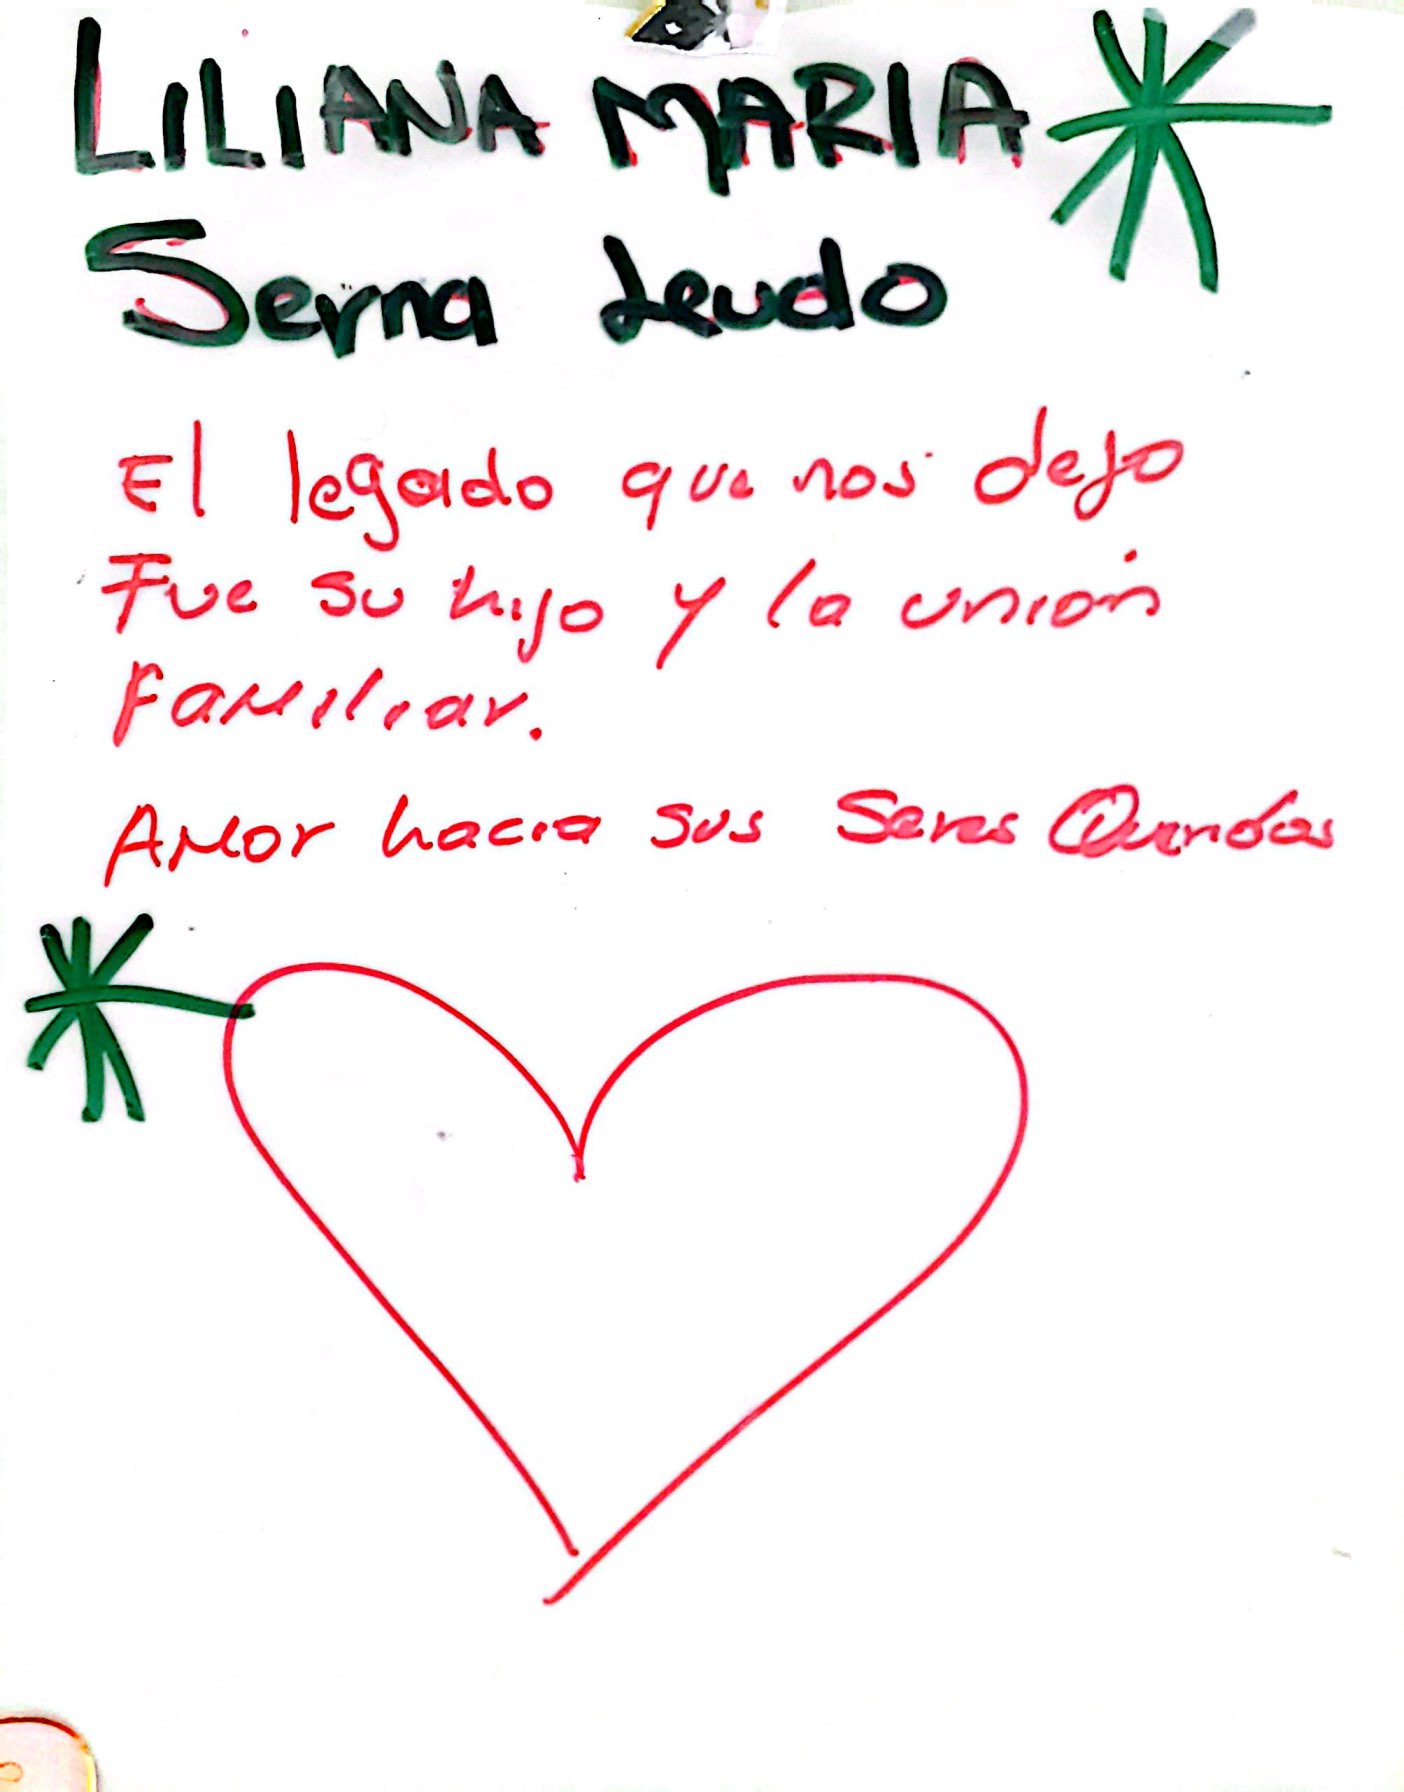 LILIANA MARIA
Serna Leudo
El legado que nos dejo
Fue su hijo y la unión
Familiar.
Amor hacia sus Seres Queridos